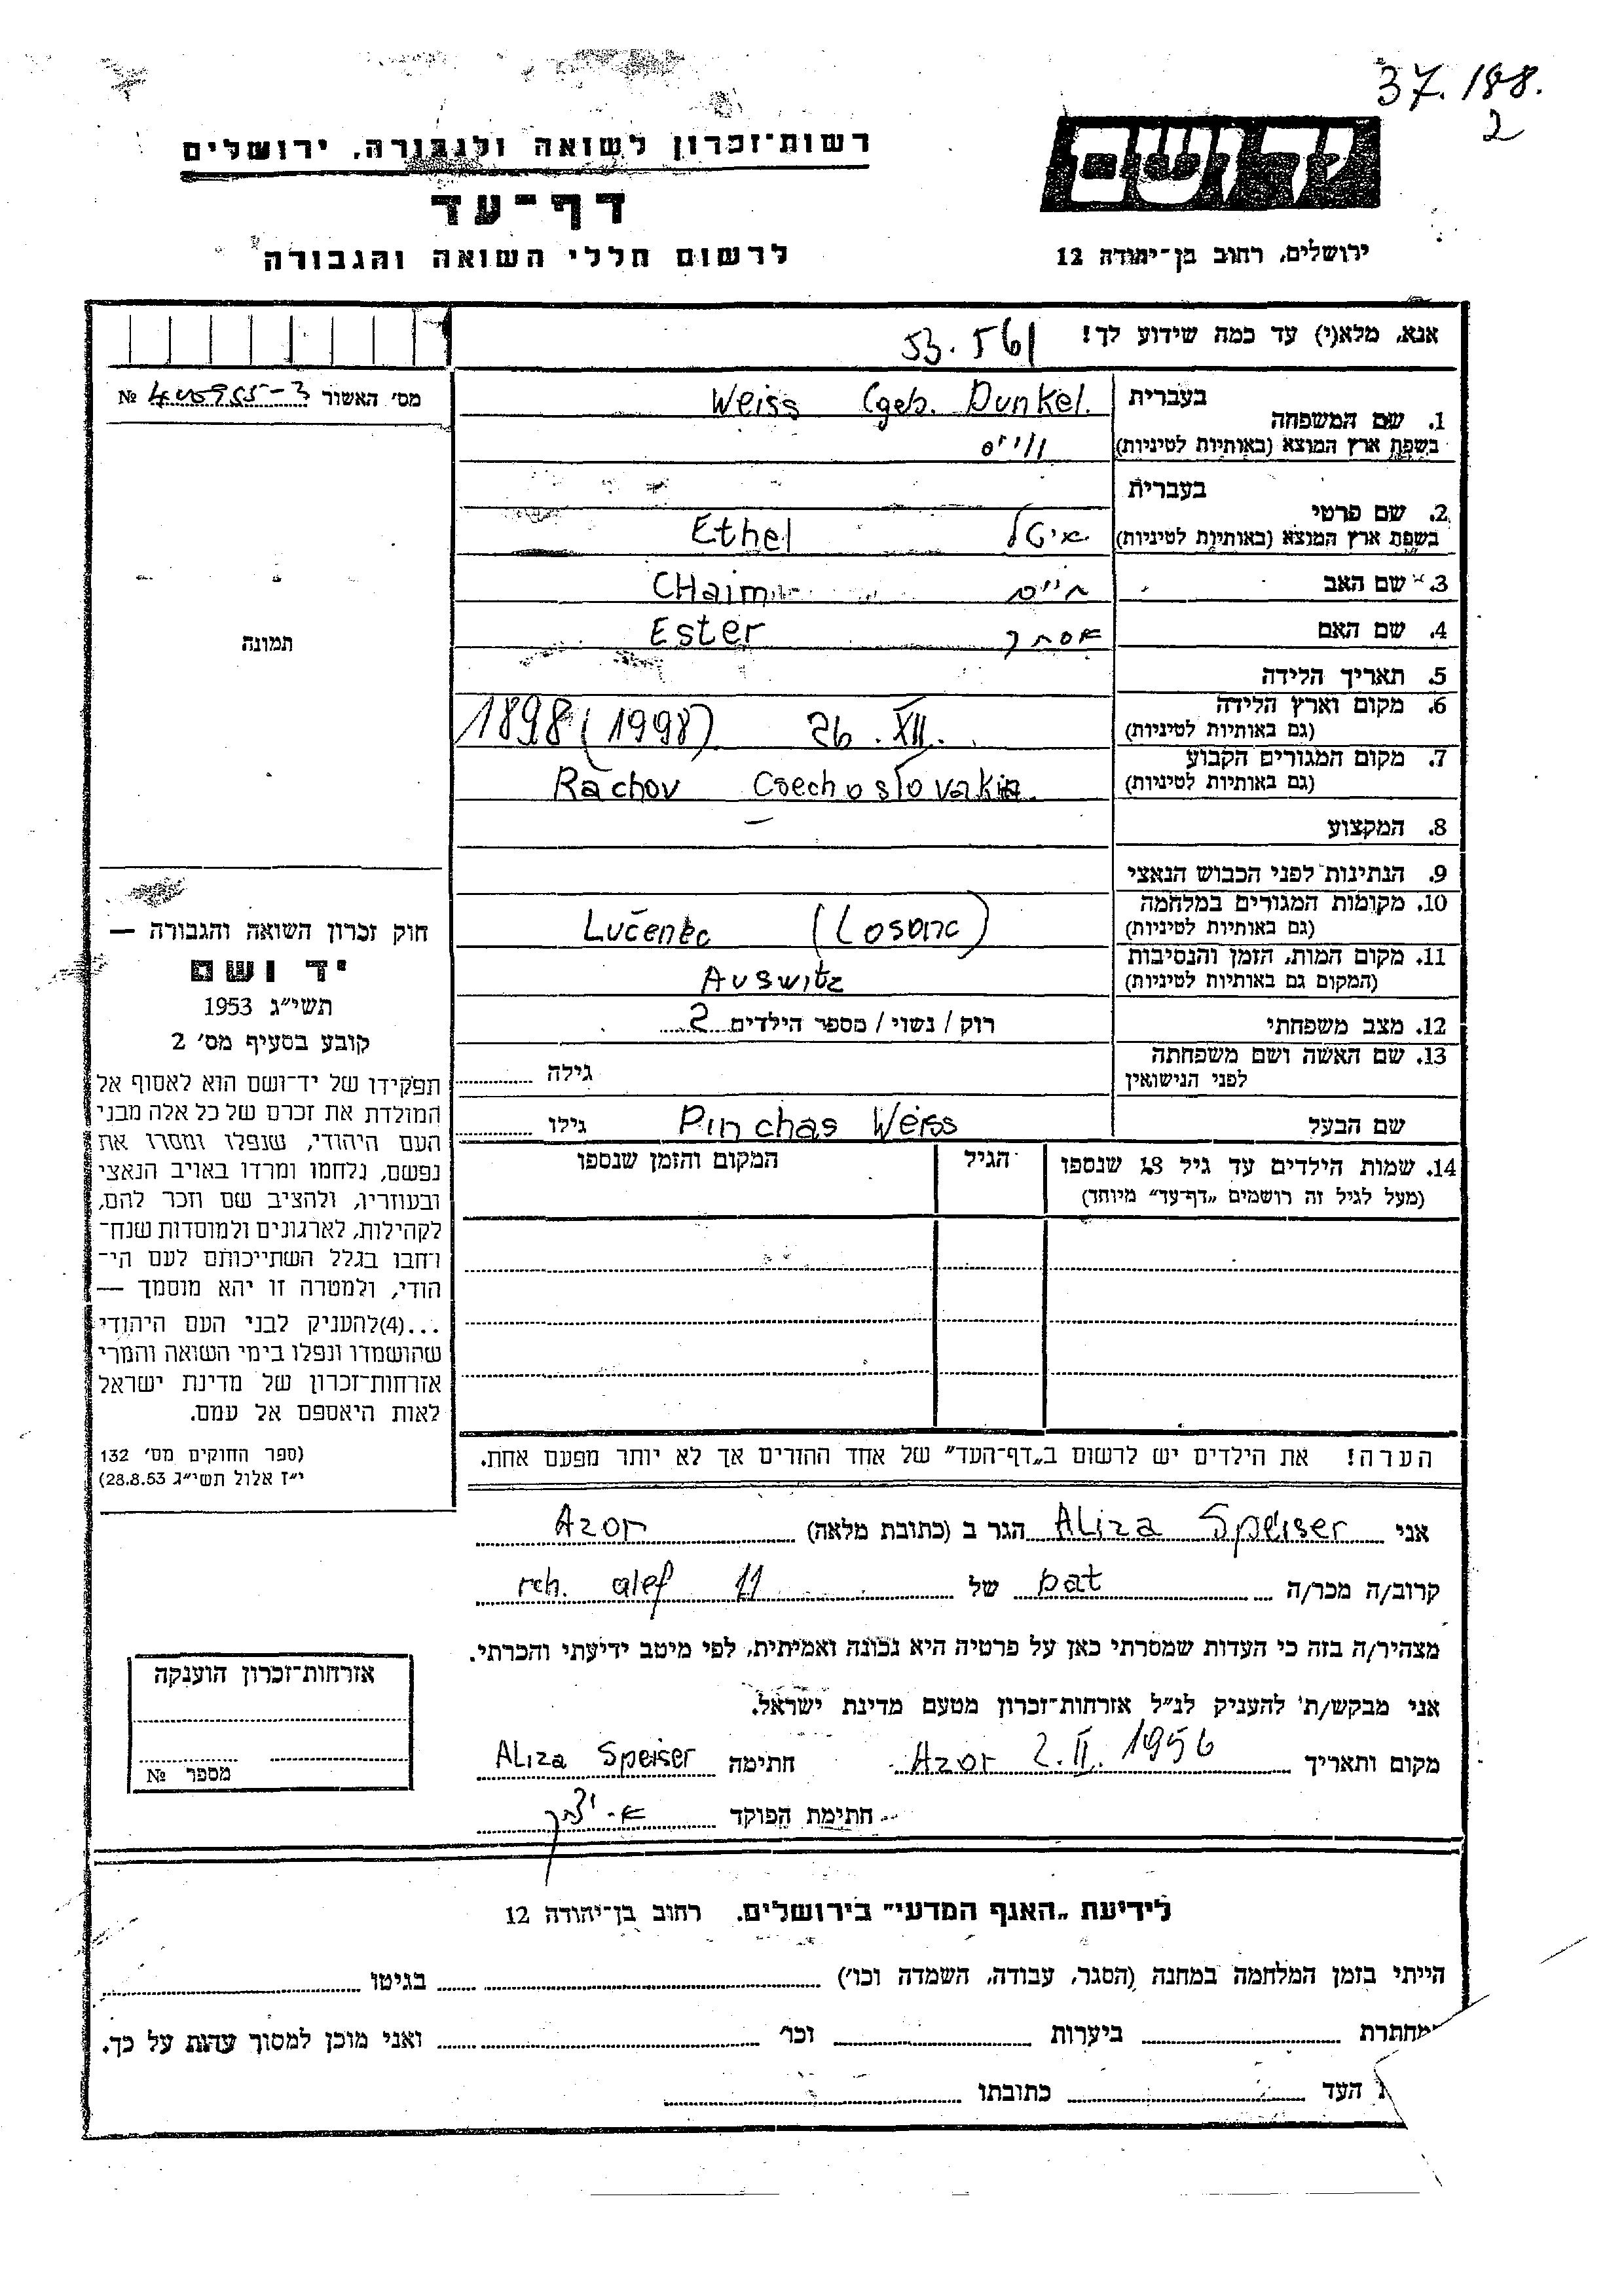 37.188.
2
ידושם
רשות־זכרון לשואה ולגבורה, ירושלים
דף־עד
לרשום חללי השואה והגבורה
ירושלים, רחוב בן־יהודה 12
אנא, מלא(י) עד כמה שידוע לך!
53.561
מס׳ האשור №
בעברית
1. שם המשפחה
בשפת ארץ המוצא (באותיות לטיניות)
Weiss (geb. Dunkel.
ווייס
בעברית
2. שם פרטי
בשפת ארץ המוצא (באותיות לטיניות)
איטל Ethel
3. שם האב חיים CHaim
4. שם האם אסתר Ester
5. תאריך הלידה
6. מקום וארץ הלידה
(גם באותיות לטיניות)
1898 (1998) 26. XII.
7. מקום המגורים הקבוע
(גם באותיות לטיניות)
Rachov Csechoslovakia
8. המקצוע —
9. הנתינות לפני הכבוש הנאצי
10. מקומות המגורים במלחמה
(גם באותיות לטיניות)
Lučenec (Losonc)
11. מקום המות, הזמן והנסיבות
(המקום גם באותיות לטיניות)
Auswitz
12. מצב משפחתי רוק / נשוי / מספר הילדים 2
13. שם האשה ושם משפחתה
לפני הנישואין
גילה
שם הבעל Pinchas Weiss גילו
14. שמות הילדים עד גיל 18 שנספו
(מעל לגיל זה רושמים „דף־עד” מיוחד)
הגיל
המקום והזמן שנספו
הערה! את הילדים יש לרשום ב„דף־העד” של אחד ההורים אך לא יותר מפעם אחת.
תמונה
חוק זכרון השואה והגבורה —
יד ושם
תשי״ג 1953
קובע בסעיף מס׳ 2
תפקידו של יד־ושם הוא לאסוף אל
המולדת את זכרם של כל אלה מבני
העם היהודי, שנפלו ומסרו את
נפשם, נלחמו ומרדו באויב הנאצי
ובעוזריו, ולהציב שם וזכר להם,
לקהילות, לארגונים ולמוסדות שנח־
רחבו בגלל השתייכותם לעם הי־
הודי, ולמטרה זו יהא מוסמך —
...(4)להעניק לבני העם היהודי
שהושמדו ונפלו בימי השואה והמרי
אזרחות־זכרון של מדינת ישראל
לאות היאספם אל עמם.
(ספר החוקים מס׳ 132
י״ז אלול תשי״ג 28.8.53)
אני Aliza Speiser הגר ב (כתובת מלאה) Azor
קרוב/ה מכר/ה bat של rch. alef 11
מצהיר/ה בזה כי העדות שמסרתי כאן על פרטיה היא נכונה ואמיתית, לפי מיטב ידיעתי והכרתי.
אני מבקש/ת׳ להעניק לנ״ל אזרחות־זכרון מטעם מדינת ישראל.
מקום ותאריך Azor 2.II.1956 חתימה Aliza Speiser
חתימת הפוקד
אזרחות־זכרון הוענקה
מספר №
לידיעת „האגף המדעי” בירושלים. רחוב בן־יהודה 12
הייתי בזמן המלחמה במחנה (הסגר, עבודה, השמדה וכו׳) בגיטו
מחתרת ביערות וכו׳ ואני מוכן למסור עדות על כך.
העד כתובתו